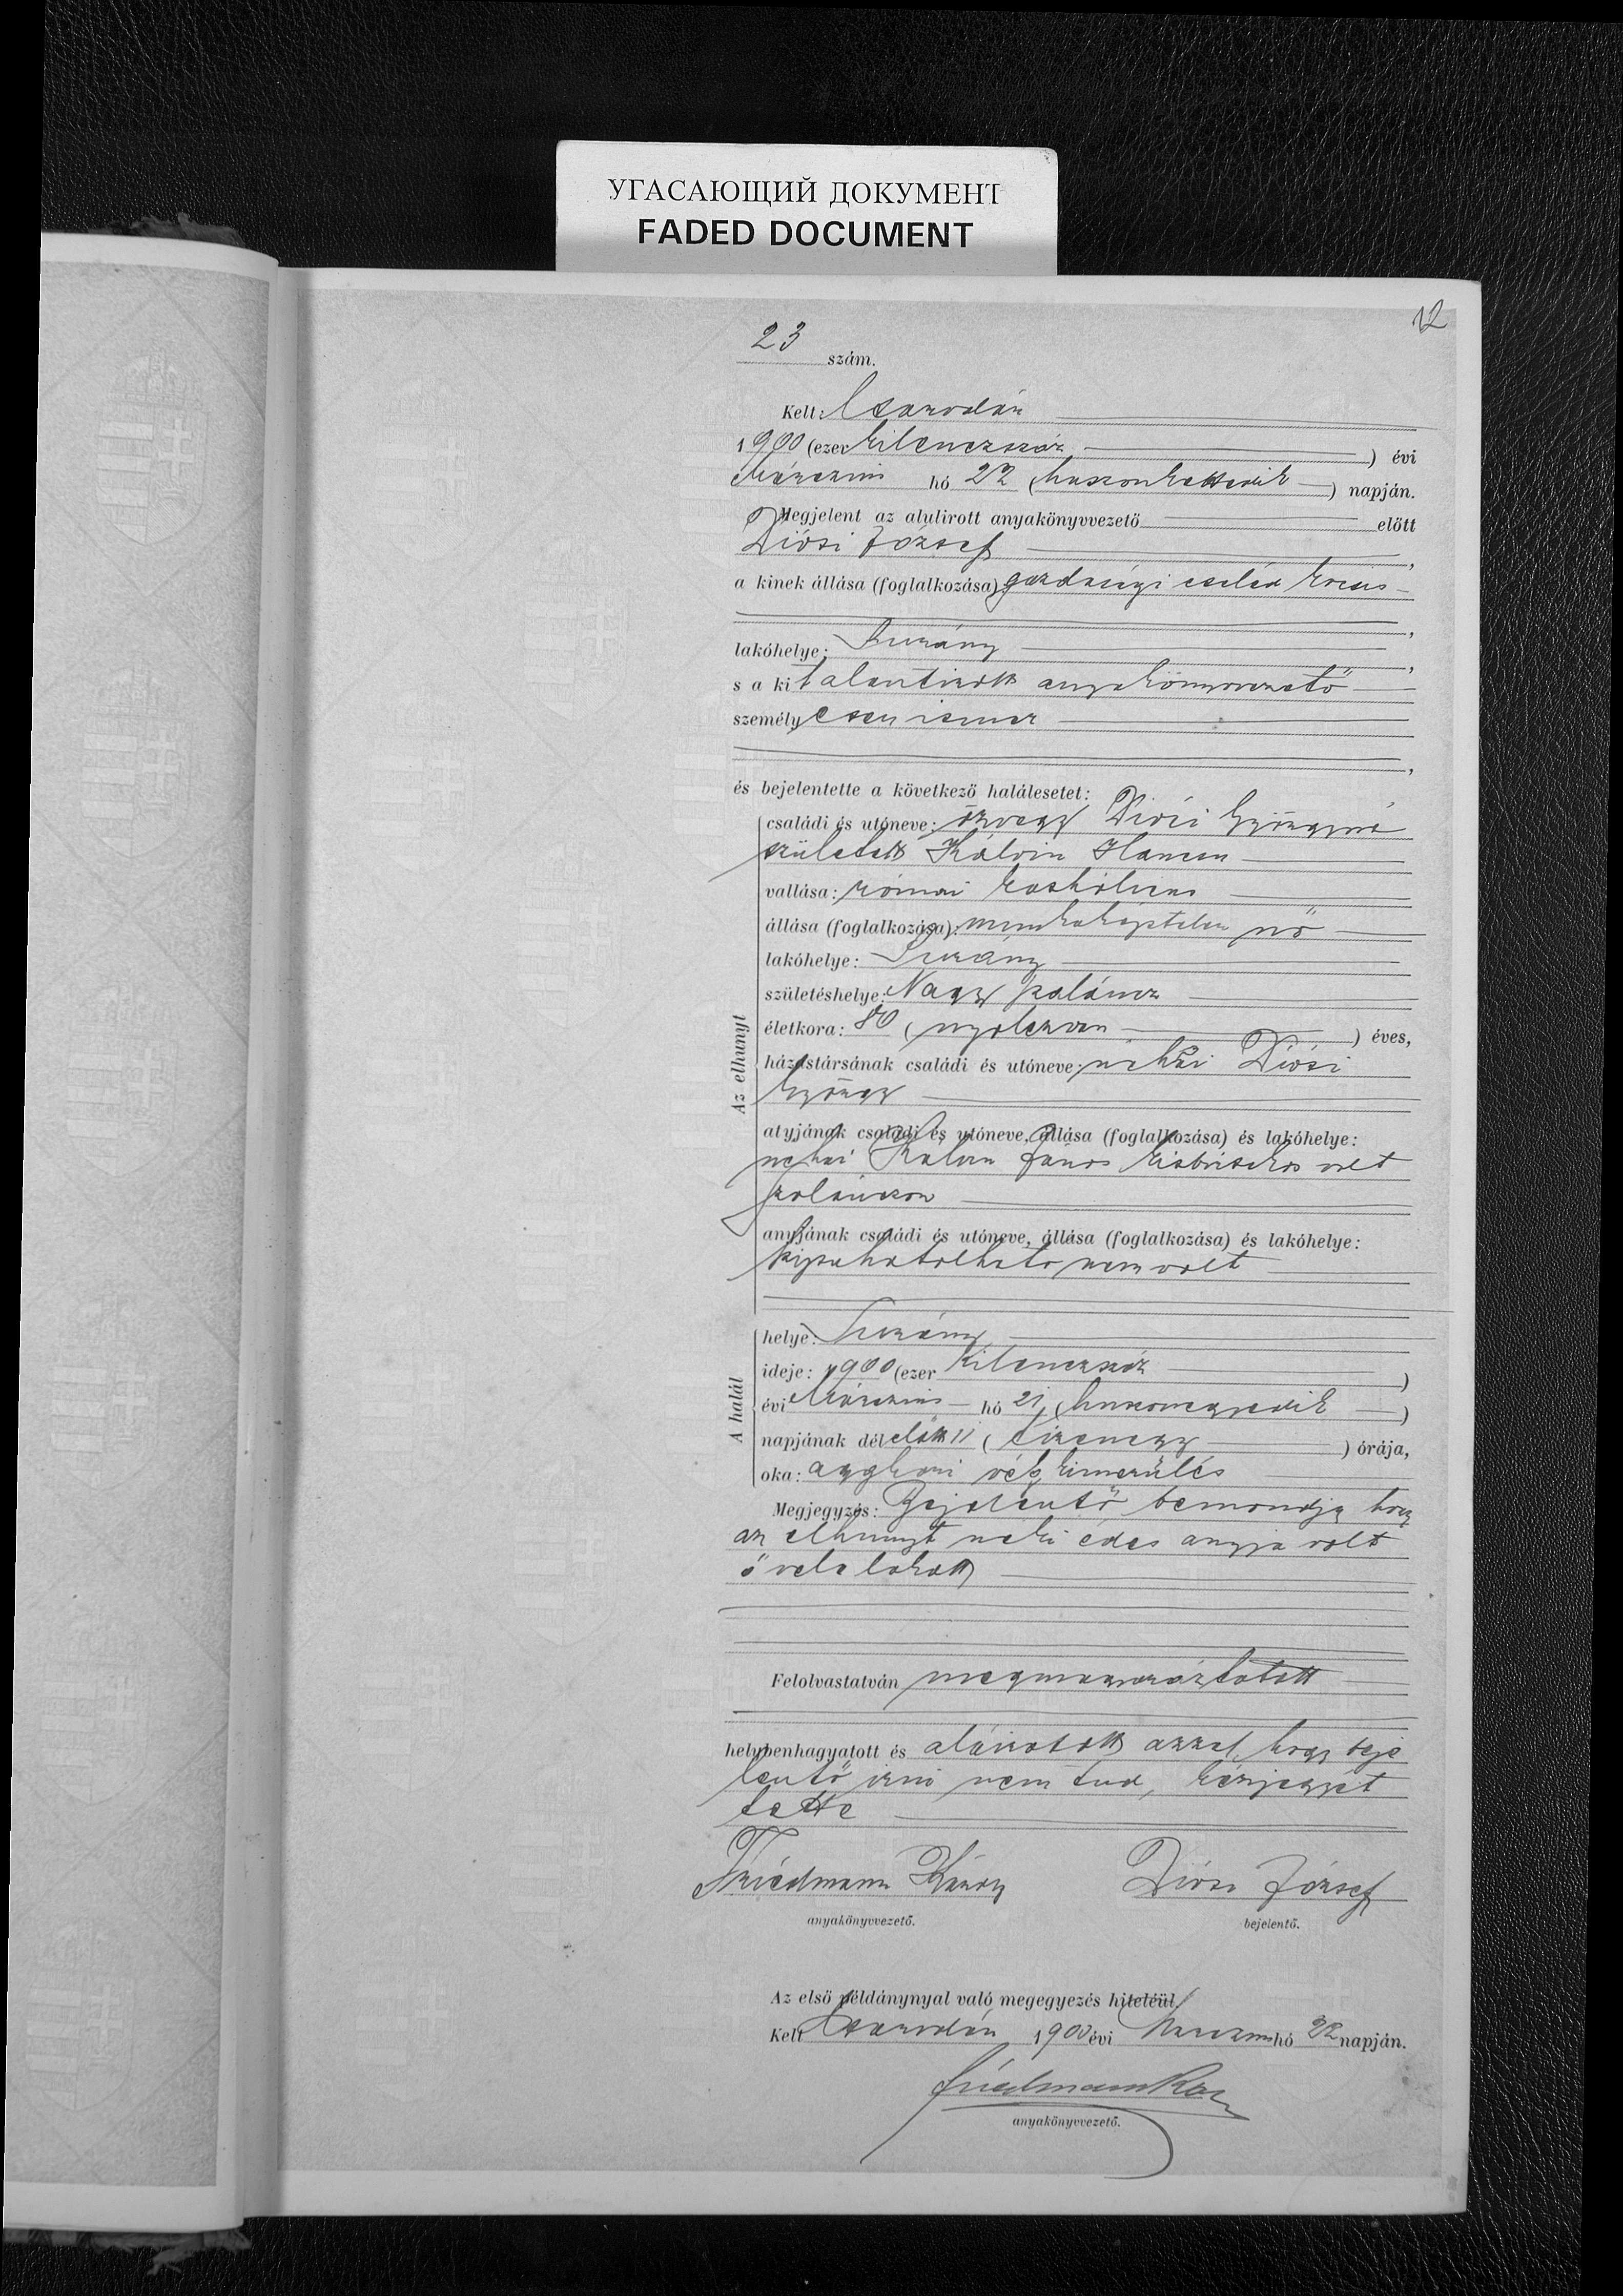 УГАСАЮЩИЙ ДОКУМЕНТ
FADED DOCUMENT
12
23 szám.
Kelt:
1900 (ezer kilenczszáz) évi
Márczius hó 22 (huszonkettedik) napján.
Megjelent az alulirott anyakönyvvezető előtt
Diósi József,
a kinek állása (foglalkozása) gazdasági cseléd kocsis
,
lakóhelye: Surány,
s a kit alantirott anyakönyvvezető
személyesen ismer
,
és bejelentette a következő halálesetet:
Az elhunyt
családi és utóneve: özvegy Diósi Györgyné
született Kálvin
vallása: római katholikus
állása (foglalkozása): munkaképtelen nő
lakóhelye: Surány
születéshelye: Nagy szaláncz
életkora: 80 (nyolczvan) éves,
házastársának családi és utóneve: néhai Diósi
György
atyjának családi és utóneve, állása (foglalkozása) és lakóhelye:
néhai Kálvin János volt
szalánczon
anyjának családi és utóneve, állása (foglalkozása) és lakóhelye:
kipuhatolható nem volt
A halál
helye: Surány
ideje: 1900 (ezer kilenczszáz)
évi Márczius hó 21 (huszonegyedik)
napjának délelőtt 11 (tizenegy) órája,
oka: aggkori végkimerülés
Megjegyzés: Bejelentő bemondja hogy
az elhunyt neki édes anyja volt
ő vele lakott
Felolvastatván megmagyaráztatott
helybenhagyatott és aláiratott azzal, hogy beje
lentő irni nem tud, kézjegyét
tette
Friedmann Károly Diósi József
anyakönyvvezető. bejelentő.
Az első példánynyal való megegyezés hiteléül.
Kelt 1900 évi Márczius hó 22 napján.
Friedmann
anyakönyvvezető.